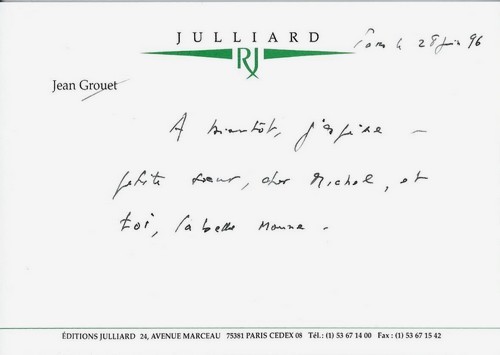 JULLIARD
RJ
Paris le 28 juin 96
Jean Grouet
A bientôt, j'espère –
petite sœur, cher Michel, et
toi, la belle Mouna –
ÉDITIONS JULLIARD 24, AVENUE MARCEAU 75381 PARIS CEDEX 08 Tél.: (1) 53 67 14 00 Fax : (1) 53 67 15 42